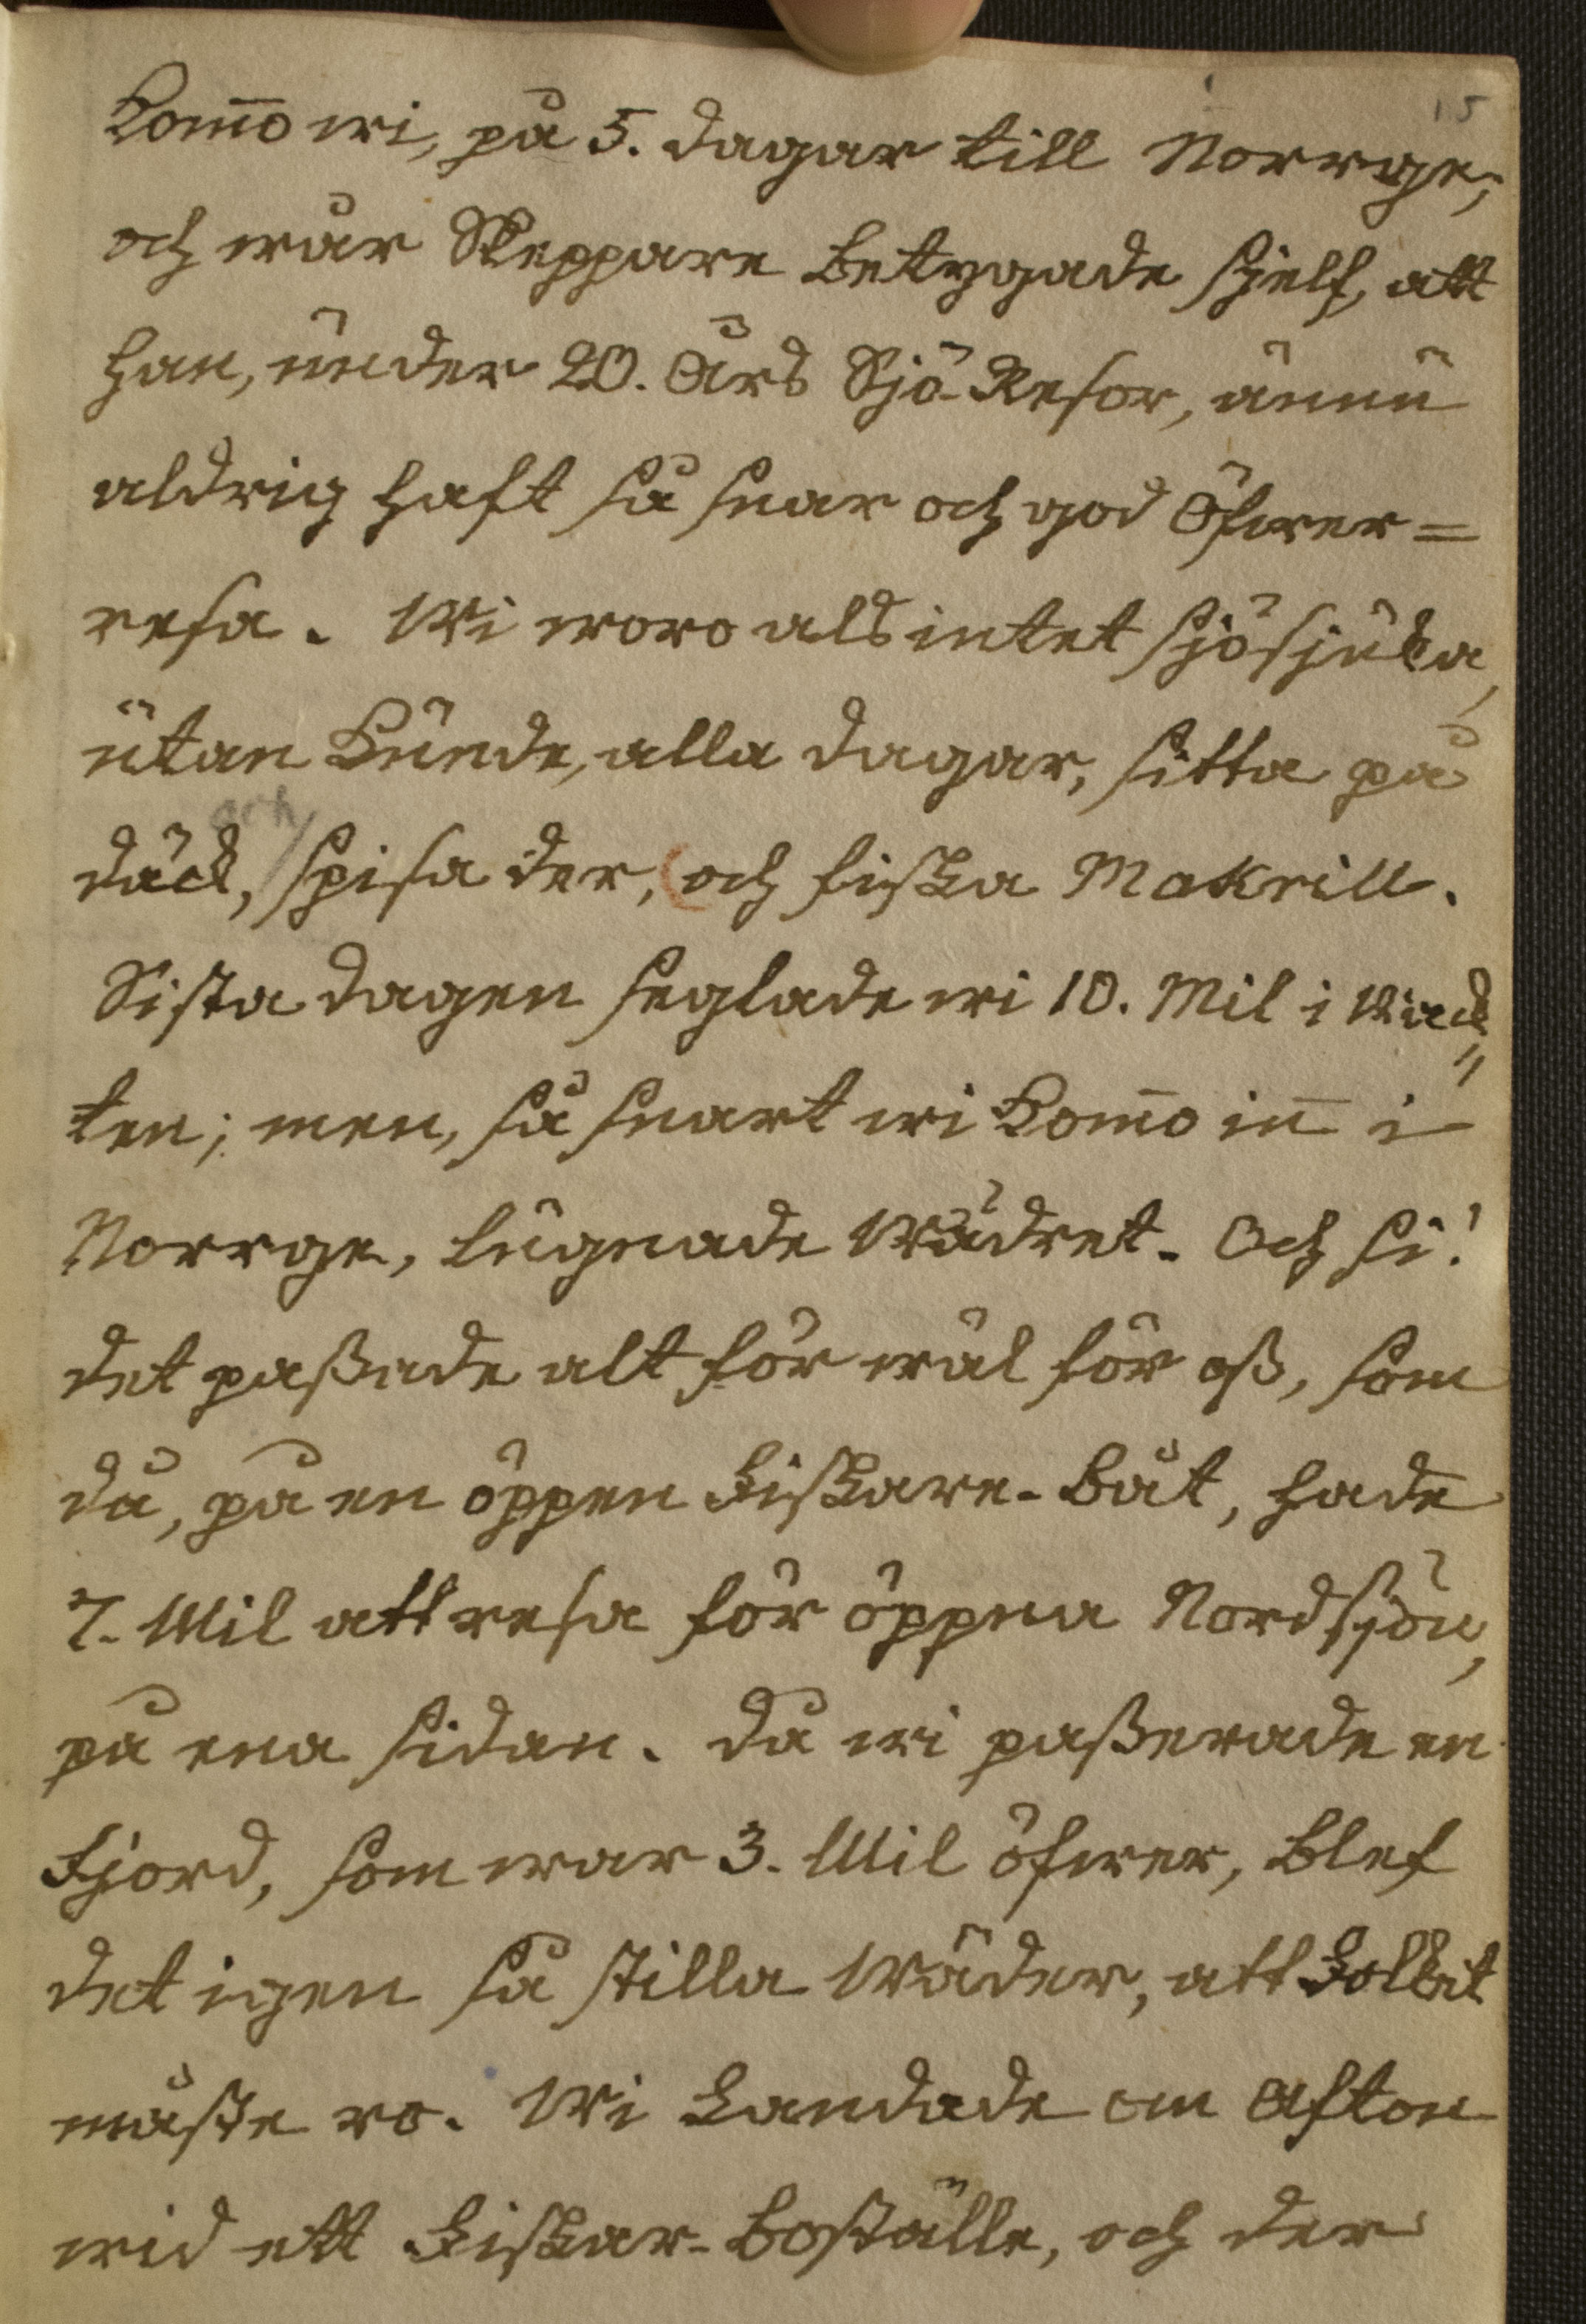 15
kom̄o wi, på 5. dagar till Norrge,
och wår Skeppare betygade sjelf, att
han, under 20. Års Sjö-Resor, ännu
aldrig haft så snar och god Öfwer=
resa. Wi woro als intet sjösjuka,
utan kunde, alla dagar, sitta på
och
däck, spisa der, (och fiska Makrill.
Sista dagen seglade wi 10. Mil i Wack
ten; men, så snart wi kom̄o in̄ i
Norrge, lugnade Wädret. Och si!
det paßade alt för wäl för oß, som
då, på en öppen Fiskare-båt, hade
7. Mil att resa för öppna Nordsjön,
på ena sidan. Då wi paßerade en
Fjord, som war 3. Mil öfwer, blef
det igen så stilla Wäder, att Folket
måste ro. Wi Landade om Afton
wid ett Fiskar-boställe, och der